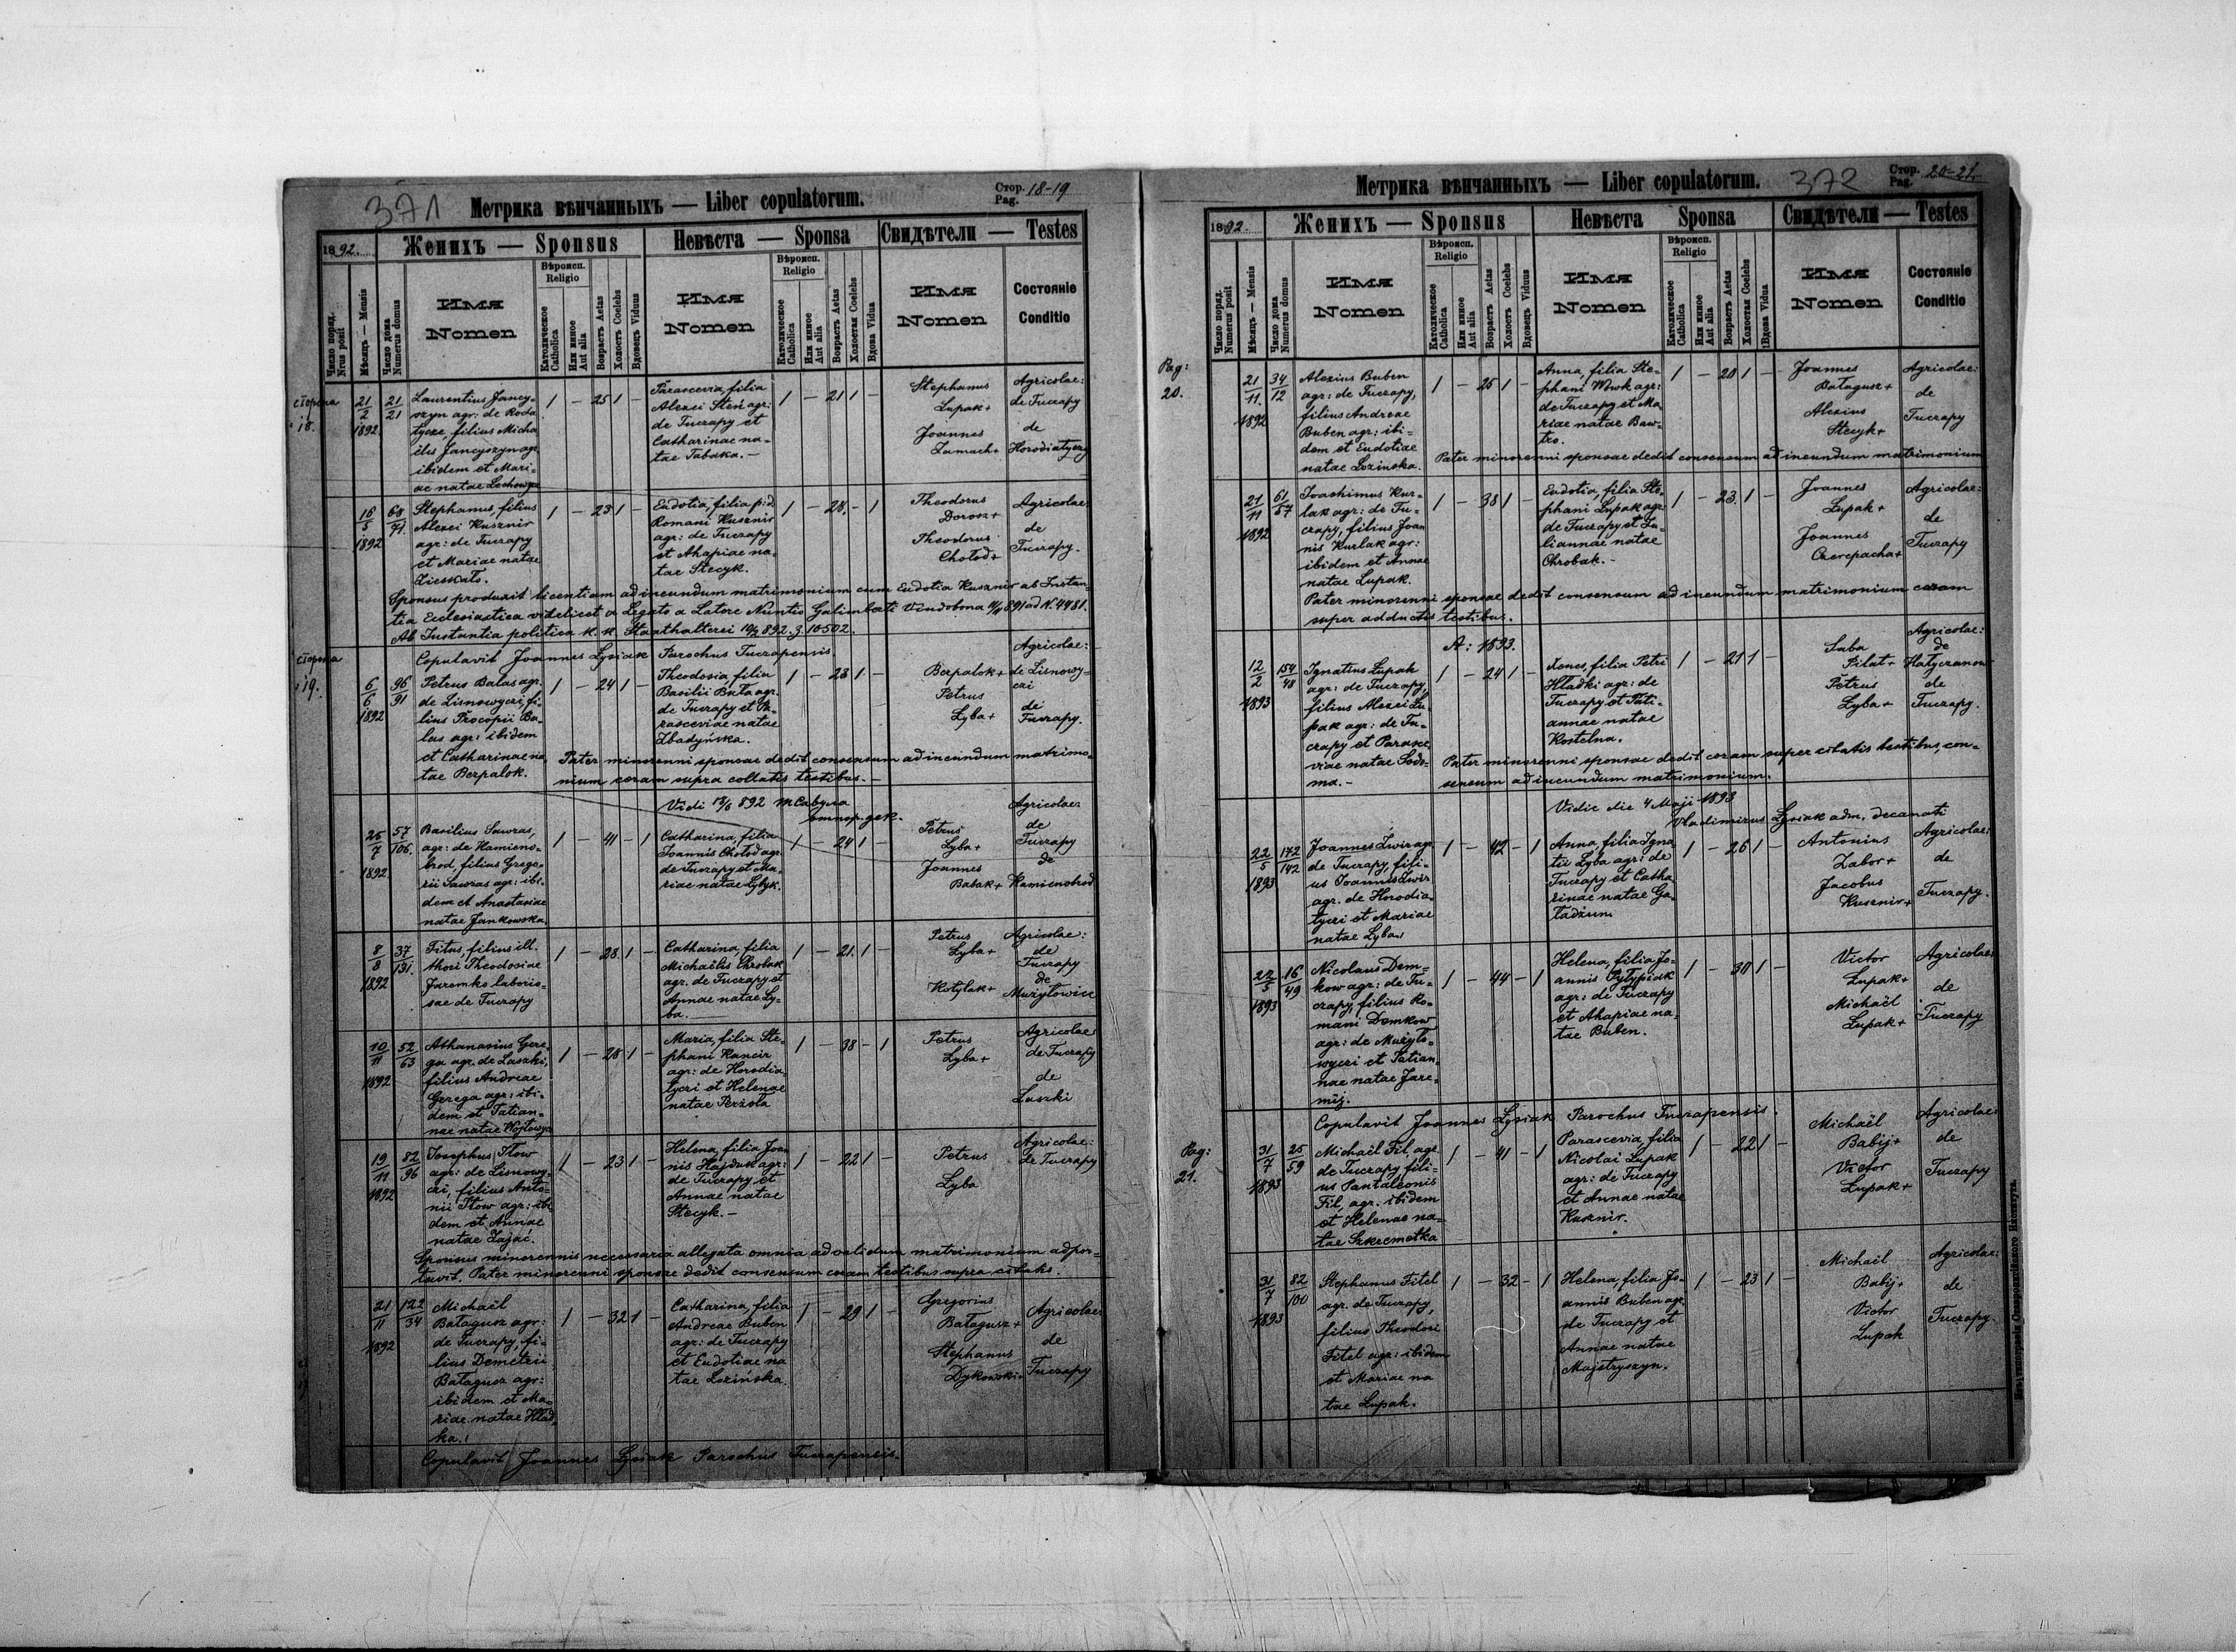 371
Метрика вѣнчанныхъ — Liber copulatorum.
Стор. Pag. 18-19
1892.
Женихъ — Sponsus
Невѣста — Sponsa
Свидѣтели — Testes
Число поряд. Nrus posit
Мѣсяцъ — Mensis
Число дома Numerus domus
Имя Nomen
Вѣроисп. Religio
Католическое Catholica
Или иное Aut alia
Возрастъ Aetas
Холостъ Coelebs
Вдовецъ Viduus
Имя Nomen
Вѣроисп. Religio
Католическое Catholica
Или иное Aut alia
Возрастъ Aetas
Холостая Coelebs
Вдова Vidua
Имя Nomen
Состояніе Conditio
сторона 18.
21/2 1892
21/21
Laurentius Jancy-
szyn agr: de Roda
tycze, filius Micha
ëlis Jancyszyn agr.
ibidem et Mari-
ae natae
1 — 25 1 —
Parascevia, filia
Alexei Steń agr:
de Tuczapy et
Catharinae na-
tae Tabaka. —
1 — 21 1 —
Stephanus
Lupak +
Joannes
Lamach +
Agricolae:
de Tuczapy
de
Horodiatyczy
16/5 1892
68/71
Stephanus, filius
Alexei Kusznir
agr: de Tuczapy
et Mariae natae
1 — 23 1 —
Eudotia, filia p: d.
Romani Kusznir
agr: de Tuczapy
et Ahapiae na-
tae Stecyk.
1 — 28. — 1
Theodorus
Dorosz +
Theodorus
Chołod +
Agricolae
de
Tuczapy.
Sponsus produxit licentiam ad ineundum matrimonium cum Eudotia Kusznir ab Instan-
tia Ecclesiastica videlicet a Legato a Latere Nuntio Galimberti Vindobona 891 ad N. 4481.
Ab Instantia politica k. k. Statthalterei 892 z. 10502.
Copulavit Joannes Łysiak Parochus Tuczapensis.
сторона 19.
6/6 1892
96/91
Petrus Balas agr.
de Lisnowyczi, fi-
lius Procopii Ba-
las agr: ibidem
et Catharinae na
tae Berpalok.
1 — 24 1 —
Theodosia, filia
Basilii Bata agr.
de Tuczapy et Pa-
rasceviae natae
Zbadyńska.
1 — 23 1 —
Berpalok +
Petrus
Łyba +
Agricolae:
de Lisnowy-
czi
de
Tuczapy.
Pater minorenni sponsae dedit consensum ad ineundum matrimo-
nium coram supra collatis testibus. —
Vidi 892
25/7 1892.
57/106.
Basilius Sawras,
agr: de Kamieno-
brod, filius Grego-
rii Sawras agr: ibi-
dem et Anastasiae
natae Jankowska.
1 — 41 — 1
Catharina, filia
Joannis Chołod agr.
de Tuczapy et Ma-
riae natae Łybyk.
1 — 24 1 —
Petrus
Łyba +
Joannes
Babak +
Agricolae:
de
Tuczapy
de
Kamienobrod
8/8 1892
37/131.
Titus, filius ill.
thori Theodosiae
Jaremko laborio-
sae de Tuczapy
1 — 28. 1 —
Catharina, filia
Michaëlis Chrobak
agr. de Tuczapy et
Annae natae Ły-
ba.
1 — 21. 1 —
Petrus
Łyba +
Kotylak +
Agricolae:
de
Tuczapy
de
Mużyłowice
10/11 1892
52/63
Athanasius Gere-
ga agr. de Laszki,
filius Andreae
Gerega agr: ibi-
dem et Tatian-
nae natae Wojtowycz
1 — 28 1 —
Maria, filia Ste-
phani Kancir
agr: de Horodia-
tyczi et Helenae
natae Perżoła
1 — 38 — 1
Petrus
Łyba +
Agricolae
de Tuczapy
de
Laszki
19/11 1892
82/96
Josephus Tłow
agr: de Lisnowy-
czi, filius Anto-
nii Tłow agr: ibi
dem et Annae
natae Zająć.
1 — 23 1 —
Helena, filia Joan
nis Hajduk agr:
de Tuczapy et
Annae natae
Stecyk. —
1 — 22 1 —
Petrus
Łyba
Agricolae:
de Tuczapy
Sponsus minorennis necessaria allegata omnia ad validum matrimonium adpor-
tavit. Pater minorenni sponsae dedit consensum coram testibus supra citatis.
21/11 1892
122/34
Michaël
Batagusz agr:
de Tuczapy, fi-
lius Demetrii
Batagusz agr:
ibidem et Ma-
riae natae Hład-
ka.
1 — 32 1 —
Catharina, filia
Andreae Buben
agr: de Tuczapy
et Eudotiae na
tae Lozińska.
1 — 29 1 —
Gregorius
Batagusz +
Stephanus
Dykowski +
Agricolae
de
Tuczapy
Copulavit Joannes Łysiak Parochus Tuczapensis.
Метрика вѣнчанныхъ — Liber copulatorum.
372
Стор. Pag. 20-21.
1892.
Женихъ — Sponsus
Невѣста Sponsa
Свидѣтели — Testes
Число поряд. Numerus posit
Мѣсяцъ — Mensis
Число дома Numerus domus
Имя Nomen
Вѣроисп. Religio
Католическое Catholica
Или иное Aut alia
Возрастъ Aetas
Холостъ Coelebs
Вдовецъ Viduus
Имя Nomen
Вѣроисп. Religio
Католическое Catholica
Или иное Aut alia
Возрастъ Aetas
Холостая Coelebs
Вдова Vidua
Имя Nomen
Состояніе Conditio
Pag: 20.
21/11. 1892
34/12
Alexius Buben
agr: de Tuczapy,
filius Andreae
Buben agr: ibi-
dem et Eudotiae
natae Lozinska.
1 — 25 1 —
Anna, filia Ste-
phani Wowk agr:
de Tuczapy et Ma-
riae natae Baw-
tro.
1 — 20 1 —
Joannes
Batagusz +
Alexius
Stecyk +
Agricolae:
de
Tuczapy
Pater minorenni sponsae dedit consensum ad ineundum matrimonium
21/11 1892
61/57
Joachimus Kur-
lak agr: de Tu-
czapy, filius Joan
nis Kurlak agr:
ibidem et Annae
natae Lupak.
1 — 38 1 —
Eudotia, filia Ste-
phani Lupak agr.
de Tuczapy et Ju-
liannae natae
Chrobak. —
1 — 23. 1 —
Joannes
Lupak +
Joannes
Czerepacha +
Agricolae:
de
Tuczapy
Pater minorenni sponsae dedit consensum ad ineundum matrimonium coram
super adductis testibus.
A: 1893.
12/2 1893
154/48
Ignatius Lupak
agr: de Tuczapy,
filius Alexei Lu-
pak agr: de Tu-
czapy et Parasce
viae natae Sodo-
ma. —
1 — 24 1 —
Xenes, filia Petri
Hładki agr: de
Tuczapy et Tati-
annae natae
Kostelna.
1 — 21 1 —
Saba
Pilat +
Petrus
Łyba +
Agricolae:
de
de
Tuczapy.
Pater minorenni sponsae dedit coram super citatis testibus, con-
sensum ad ineundum matrimonium.
Vidie die 4 Maji 1893
Vladimirus Łysiak adm. decanati
22/5 1893
172/142
Joannes Żwir agr
de Tuczapy, fili-
us Joannis Żwir
agr. de Horodia-
tyczi et Mariae
natae Łyba
1 — 42 — 1
Anna, filia Igna
tii Łyba agr: de
Tuczapy et Catha
rinae natae Ga-
ładżun.
1 — 26 1 —
Antonius
Zabor +
Jacobus
Kusznir +
Agricolae:
de
Tuczapy.
22/5 1893
16/49
Nicolaus Dem-
kow agr: de Tu-
czapy, filius Ro-
mani Demkow
agr: de Mużyło-
wyczi et Tatian-
nae natae Jare-
mij.
1 — 44 — 1
Helena, filia Jo-
annis Pyłypiak
agr: de Tuczapy
et Ahapiae na-
tae Buben.
1 — 30 1 —
Victor
Lupak +
Michaël
Lupak +
Agricolae
de
Tuczapy
Copulavit Joannes Łysiak Parochus Tuczapensis.
Pag: 21.
31/7 1893
25/59
Michaël Fil, agr.
de Tuczapy fili-
us Pantaleonis
Fil, agr. ibidem
et Helenae na-
tae Szkremetka
1 — 41 — 1
Parascevia, filia
Nicolai Lupak
agr: de Tuczapy
et Annae natae
Kusznir.
1 — 22 1 —
Michaël
Babij +
Victor
Lupak +
Agricolae
de
Tuczapy
31/7 1893
82/100
Stephanus Fitel
agr. de Tuczapy,
filius Theodori
Fitel agr: ibidem
et Mariae na
tae Lupak.
1 — 32 — 1
Helena, filia Jo-
annis Buben agr.
de Tuczapy et
Annae natae
Majstryszyn.
1 — 23 1 —
Michaël
Babij +
Victor
Lupak
Agricolae:
de
Tuczapy.